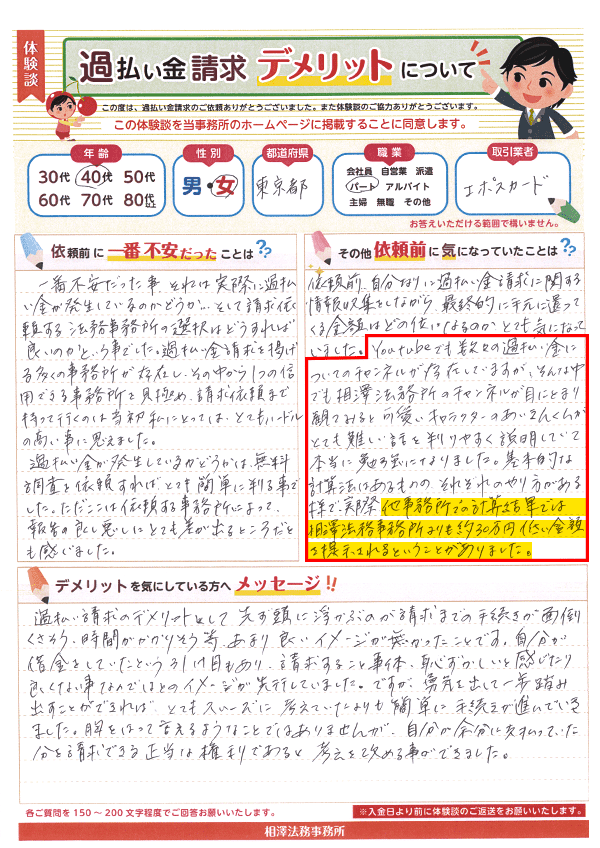 体験談
過払い金請求 デメリットについて
この度は、過払い金請求のご依頼ありがとうございました。また体験談のご協力ありがとうございます。
この体験談を当事務所のホームページに掲載することに同意します。
年齢
30代 40代 50代
60代 70代 80代以上
性別
男・女
都道府県
東京都
職業
会社員 自営業 派遣
パート アルバイト
主婦 無職 その他
取引業者
エポスカード
お答えいただける範囲で構いません。
依頼前に一番不安だったことは??
一番不安だった事、それは実際に過払
い金が発生しているのかどうか…そして請求依
頼する法務事務所の選択はどうすれば
良いのかという事でした。過払い金請求を掲げ
る多くの事務所が存在し、その中から1つの信
用できる事務所を見極め、請求依頼まで
持って行くのは当初私にとっては、とてもハードル
の高い事に思えました。
過払い金が発生しているかどうかは、無料
調査を依頼すればとても簡単に判る事で
した。ただここは依頼する事務所によって、
報告の良し悪しにとても差が出るところだと
も感じました。
その他依頼前に気になっていたことは??
依頼前、自分なりに過払い金請求に関する
情報収集をしながら、最終的に手元に還って
くる金額はどの位になるのかとても気になって
いました。Youtubeでも数々の過払い金に
ついてのチャンネルが存在していますが、そんな中
でも相澤法務所のチャンネルが目にとまり
観てみると可愛いキャラクターのあいさんくんが
とても難しい話を判りやすく説明していて
本当に勉強になりました。基本的な
計算法はあるものの、それぞれのやり方がある
様で実際、他事務所での計算結果では
相澤法務事務所よりも約30万円低い金額
を提示されるということがありました。
デメリットを気にしている方へメッセージ!!
過払い請求のデメリットとして先ず頭に浮かぶのが請求までの手続きが面倒
くさそう、時間がかかりそう等、あまり良いイメージが無かったことです。自分が
借金をしていたという引け目もあり、請求すること事体、恥ずかしいと感じたり
良くない事なんではとのイメージが先行していました。ですが、勇気を出して一歩踏み
出すことができれば、とてもスムーズに考えていたよりも簡単に手続きが進んでいき
ました。胸をはって言えるようなことではありませんが、自分が余分に支払っていた
分を請求できる正当な権利であると考えを改める事ができました。
各ご質問を150～200文字程度でご回答お願いいたします。
※入金日より前に体験談のご返送をお願いいたします。
相澤法務事務所